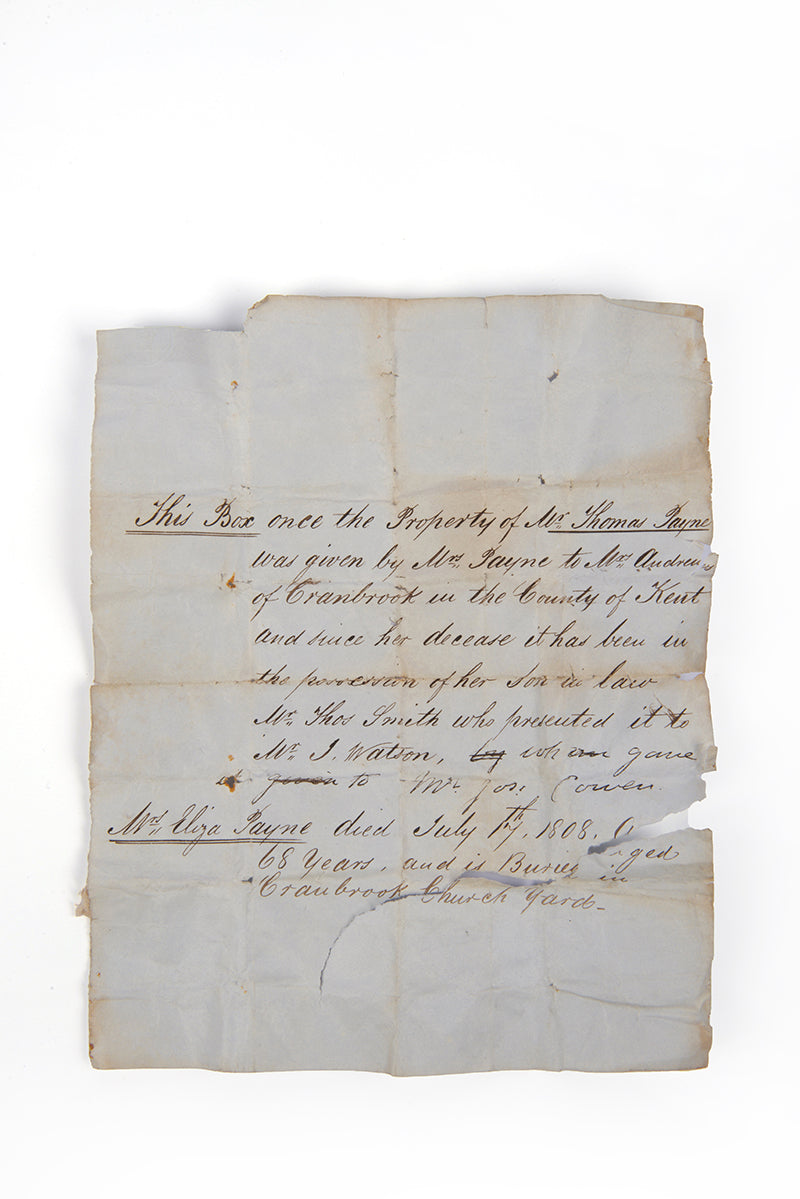 This Box once the Property of Mr. Thomas Payne
was given by Mrs. Payne to Mrs. Andrews
of Cranbrook in the County of Kent
and since her decease it has been in
the possession of her Son in law
Mr. Thos Smith who presented it to
Mr. J. Watson, by whom gave
it given to Mr. Jos. Cowen.
Mrs. Eliza Payne died July 17th, 1808. Aged
68 Years, and is Buried in
Cranbrook Church Yard-